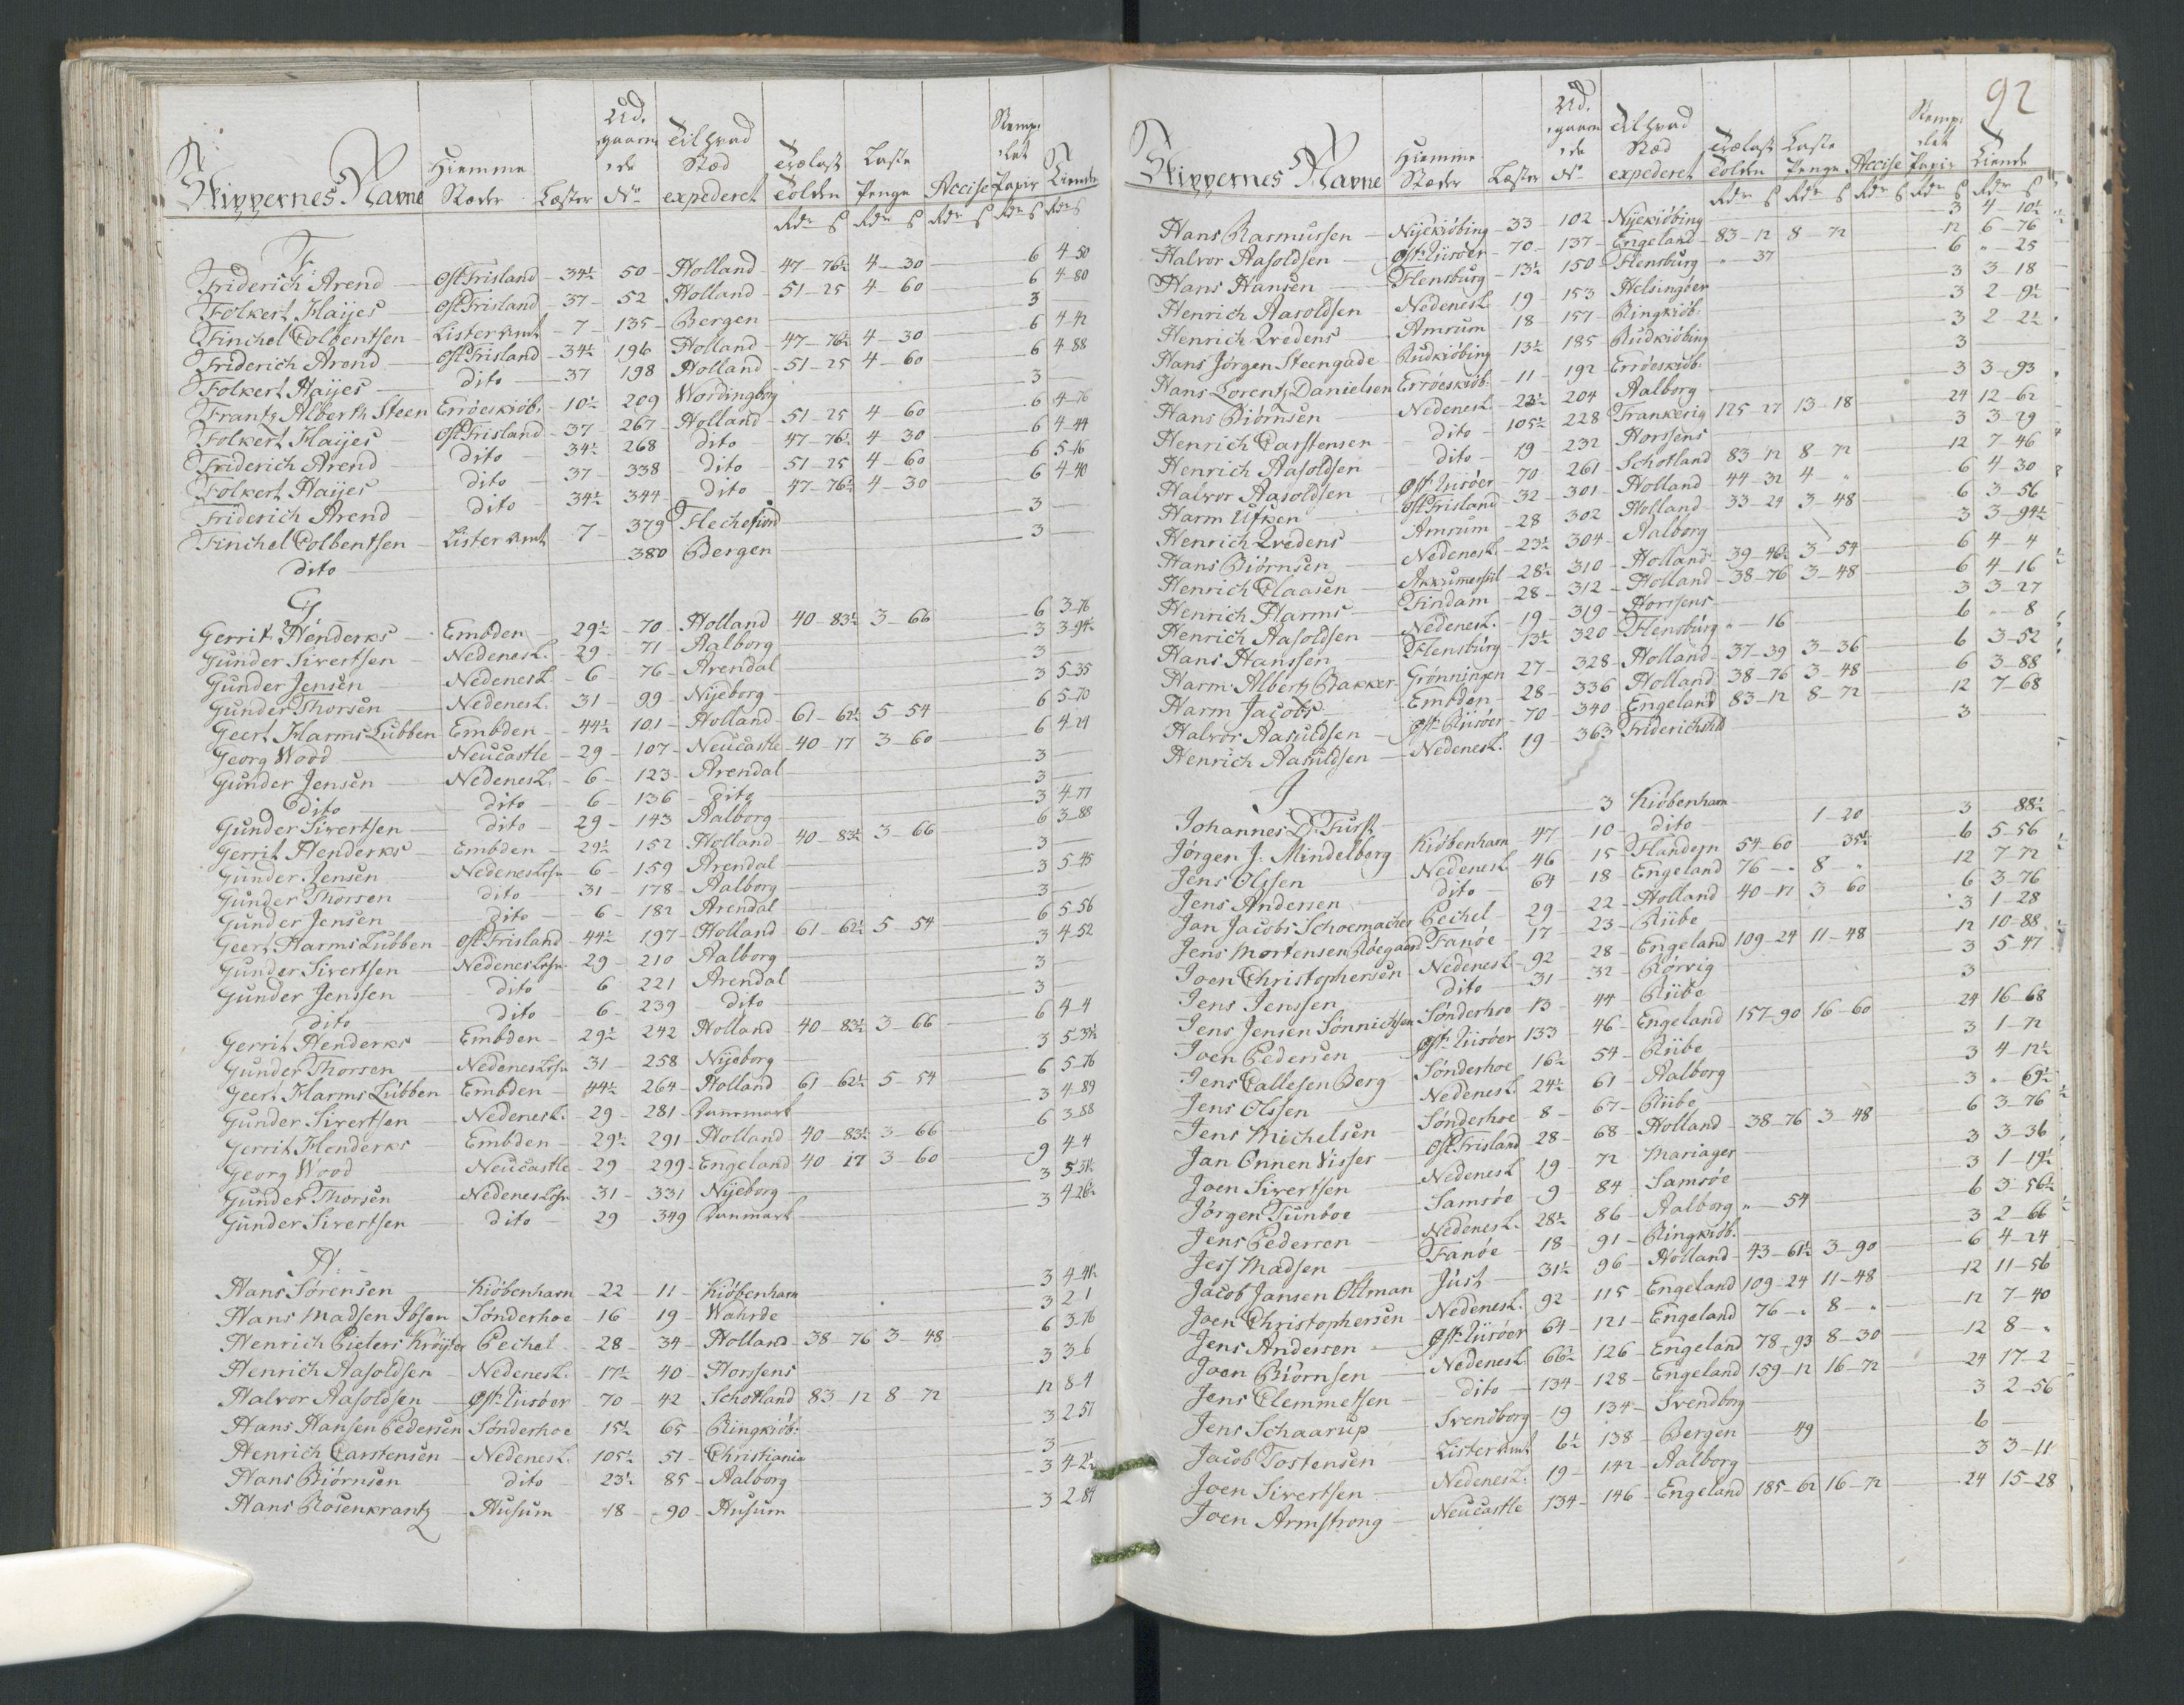 Skippernes Navne Hiemme Stæder Læster Ud, gaaende No Til hvad Stæd expederet Trælast Tolden Laste Penge Accise Stemp: let Papir Tiende
Rdr ß Rdr ß Rdr ß Rdr ß Rdr ß
F.
Friderich Arend Ostfrisland 34½ 50 Holland 47-76½ 4-30 6 4-50
Folkert Haijes Ostfrisland 37 52 Holland 51-25 4-60 6 4-80
Finchel Colbentsen Lister Amt 7 135 Bergen 3
Friderich Arend Ostfrisland 34½ 196 Holland 47-76½ 4-30 6 4-42
Folkert Haijes dito 37 198 Holland 51-25 4-60 6 4-88
Frantz Alberth Steen Erröeskiöb: 10½ 209 Wordingborg 3
Folkert Haijes Ostfrisland 37 267 Holland 51-25 4-60 6 4-76
Friderich Arend dito 34½ 268 dito 47-76½ 4-30 6 4-44
Folkert Haijes dito 37 338 dito 51-25 4-60 6 5-16
Friderich Arend dito 34½ 344 dito 47-76½ 4-30 6 4-40
Finchel Colbentsen Lister Amt 7 379 Flechefiord 3
dito 380 Bergen 3
G
Gerrit Henderks Embden 29½ 70 Holland 40-83½ 3-66 6 3-76
Gunder Sivertsen Nedenesl. 29 71 Aalborg 3 3-94½
Gunder Jensen Nedenesl. 6 76 Arendal 3
Gunder Thorsen Nedenesl. 31 99 Nijeborg 3 5-35
Geert Harms Lübben Embden 44½ 101 Holland 61-62½ 5-54 6 5-70
Georg Wood Neucastle 29 107 Neucastle 40-17 3-60 6 4-24
Gunder Jensen Nedenesl. 6 123 Arendal 3
dito dito 6 136 dito 3
Gunder Sivertsen dito 29 143 Aalborg 3 4-77
Gerrit Henderks Embden 29½ 152 Holland 40-83½ 3-66 6 3-88
Gunder Jensen Nedeneslehn 6 159 Arendal 3
Gunder Thorsen dito 31 178 Aalborg 3 5-45
Gunder Jensen dito 6 182 Arendal 3
Geert Harms Lübben Ostfrisland 44½ 197 Holland 61-62½ 5-54 6 5-56
Gunder Sivertsen Nedeneslehn 29 210 Aalborg 3 4-52
Gunder Jenssen dito 6 221 Arendal 3
dito dito 6 239 dito 3
Gerrit Henderks Embden 29½ 242 Holland 40-83½ 3-66 6 4-4
Gunder Thorsen Nedeneslehn 31 258 Nijeborg 3 5-31½
Geert Harms Lübben Embden 44½ 264 Holland 61-62½ 5-54 6 5-76
Gunder Sivertsen Nedenesl. 29 281 Danmark 3 4-89
Gerrit Henderks Embden 29½ 291 Holland 40-83½ 3-66 6 3-88
Georg Wood Neucastle 29 299 Engeland 40 17 3-60 9 4-4
Gunder Thorsen Nedeneslehn 31 331 Nijeborg 3 5-31½
Gunder Sivertsen dito 29 349 Danmark 3 4-26½
H.
Hans Sørensen Kiöbenhavn 22 11 Kiöbenhavn 3 4-41½
Hans Madsen Ibsen Sönderhoe 16 19 Wahrde 3 2-1
Henrich Pieters Kröÿter Pechel 28 34 Holland 38-76 3-48 6 3-76
Henrich Aasoldsen Nedenesl. 17½ 40 Horssens 3 3-6
Halvor Aasoldsen Øst:Riisöer 70 42 Schotland 83-12 8-72 12 8-4
Hans Hansen Pedersen Sönderhoe 15½ 65 Ringkiöb: 3 2-57
Henrich Carstensen Nedenesl. 105½ 51 Christiania 3
Hans Biörnsen dito 23½ 85 Aalborg 3 4-2½
Hans Rosenkrantz Husum 18 90 Husum 3 2-84
92
Skippernes Navne Hiemme Stæder Læster Ud, gaaende No Til hvad Stæd expederet Trælast Tolden Laste Penge Accise Stemp: let Papir Tiende
Rdr ß Rdr ß Rdr ß Rdr ß Rdr ß
Hans Rasmussen Nijekiöbing 33 102 Nijekiöbing 3 4-10½
Halvor Aasoldsen Øst:Riisöer 70 137 Engeland 83-12 8-72 12 6-76
Hans Hansen Flensburg 13½ 150 Flensburg " 37 6 "-25
Henrich Aasoldsen Nedenesl. 19 153 Helsingöer 3 3-18
Henrich Qvedens Amrum 18 157 Ringkiöb: 3 2-9½
Hans Jörgen Steengade Rudkiöbing 13½ 185 Rudkiöbing 3 2-2½
Hans Lorentz Danielsen Erröeskiöb: 11 192 Erröeskiöb: 3
Hans Biörnsen Nedenesl. 23½ 204 Aalborg 3 3-93
Henrich Carstensen dito 105½ 228 Frankerig 125-27 13-18 24 12-62
Henrich Aasoldsen dito 19 232 Horssens 3 3-29
Halvor Aasoldsen Øst:Riisöer 70 261 Schotland 83-12 8-72 12 7-46
Harm Ufken Ostfrisland 32 301 Holland 44-32 4-" 6 4-30
Henrich Qvedens Amrum 28 302 Holland 33-24 3-48 6 3-56
Hans Biörnsen Nedenesl. 23½ 304 Aalborg 3 3-94½
Henrich Claasen Akkumersiil 28½ 310 Holland 39-46½ 3-54 6 4-4
Henrich Harms Findam 28 312 Holland 38-76 3-48 6 4-16
Henrich Aasoldsen Nedenesl. 19 319 Horssens 3 3-27
Hans Hanssen Flensburg 13½ 320 Flensburg "-16 6 "-8
Harm Albertz Bakker Grönningen 27 328 Holland 37-39 3-36 6 3-52
Harm Jacobs Embden 28 336 Holland 38-76 3-48 6 3-88
Halvor Aasuldsen Øst:Riisöer 70 340 Engeland 83-12 8-72 12 7-68
Henrich Aasuldsen Nedenesl. 19 363 Friderichshld 3
J
Johannes D. Furst 3 Kiöbenhavn
Jörgen J. Mindelborg Kiöbenhavn 47 10 dito 1-20 3 88½
Jens Olssen Nedenesl. 46 15 Flandern 54-60 35½ 6 5-56
Jens Andersen dito 64 18 Engeland 76-" 8-" 12 7-72
Jan Jacobs Schoemacher Pechel 29 22 Holland 40-17 3-60 6 3-76
Jens Mortensen Röegaard Fanöe 17 23 Riibe 3 1-28
Joen Christophersen Nedenesl. 92 28 Engeland 109-24 11-48 12 10-88
Jens Jenssen dito 31 32 Rörvig 3 5-47
Jens Jensen Sönnichsen Sönderhoe 13 44 Riibe 3
Joen Pedersen Øst:Riisöer 133 46 Engeland 157-90 16-60 24 16-68
Jens Pallesen Berg Sönderhoe 16½ 54 Riibe 3 1-72
Jens Olssen Nedenesl. 24½ 61 Aalborg 3 4-12½
Jens Michelsen Sönderhoe 8 67 Riibe 3 "-69½
Jan Onnen Visser Ostfrisland 28 68 Holland 38-76 3-48 6 3-76
Joen Sivertsen Nedenesl. 19 72 Mariager 3 3-36
Jörgen Tunboe Samsöe 9 84 Samsöe 3 1-19½
Jens Pedersen Nedenesl. 28½ 86 Aalborg "-54 6 3-56½
Jess Madsen Fanöe 18 91 Ringkiöb. 3 2-66
Jacob Jansen Oltman Just 31½ 96 Holland 43-61½ 3-90 6 4-24
Joen Christophersen Nedenesl. 92 115 Engeland 109-24 11-48 12 11-56
Jens Andersen Øst:Riisöer 64 121 Engeland 76-" 8-" 12 7-40
Joen Biörnsen Nedenesl. 66½ 126 Engeland 78-93 8-30 12 8-"
Jens Clemmetsen dito 134 128 Engeland 159-12 16-72 24 17-2
Jens Schaarup Svendborg 19 134 Svendborg 3 2-56
Jacob Tostensen Lister Amt 6½ 138 Bergen 49 6
Joen Sivertsen Nedenesl. 19 142 Aalborg 3 3-11
Joen Armstrong Neucastle 134 146 Engeland 185-62 16-72 24 15-28